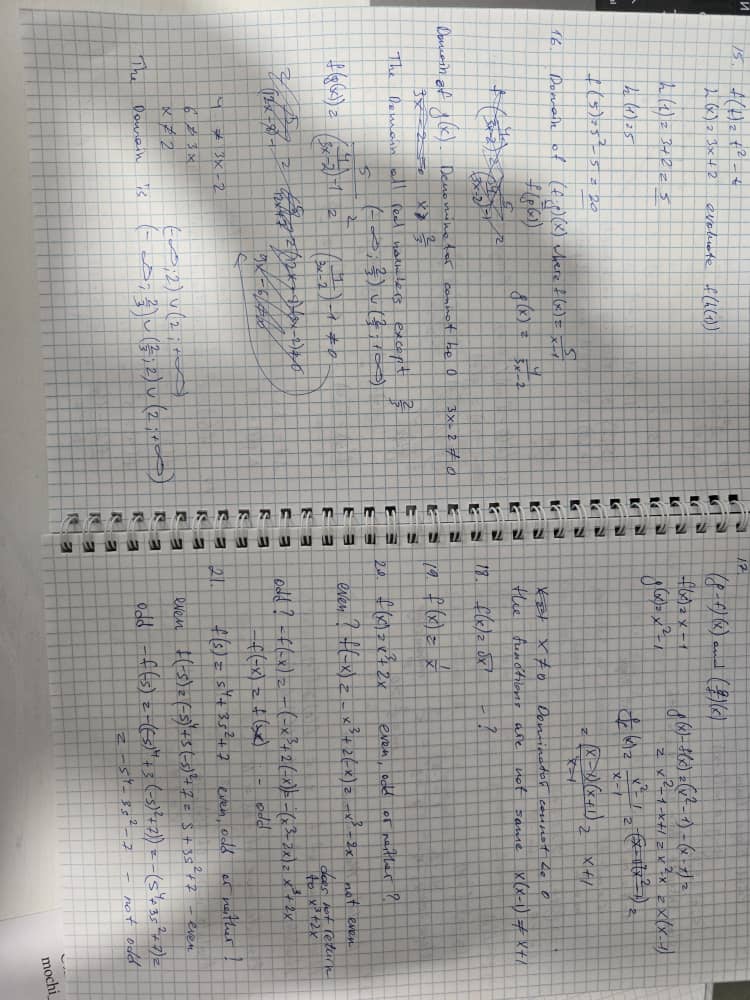 15. f(t) = t² - t
h(x) = 3x + 2 evaluate f(h(1))
h(1) = 3 + 2 = 5
h(1) = 5
f(5) = 5² - 5 = 20
16. Domain of (f∘g)(x) where f(x) = 5/(x-1)
f(g(x)) g(x) = 4/(3x-2)
Domain of g(x) Denominator cannot be 0 3x - 2 ≠ 0
3x - 2 = 0 x ≠ 2/3
The Domain all real numbers except 2/3
(-∞; 2/3) ∪ (2/3; +∞)
f(g(x)) = 5/((4/(3x-2)) - 1) = (4/(3x-2)) - 1 ≠ 0
4 ≠ 3x - 2
6 ≠ 3x
x ≠ 2 (-∞; 2) ∪ (2; +∞)
The Domain is (-∞; 2/3) ∪ (2/3; 2) ∪ (2; +∞)
17.
(g-f)(x) and (g/f)(x)
f(x) = x - 1 g(x) - f(x) = (x² - 1) - (x - 1) =
g(x) = x² - 1 = x² - 1 - x + 1 = x² - x = x(x-1)
g/f(x) = (x² - 1)/(x - 1) =
= (x-1)(x+1)/(x-1) = x + 1
x ≠ 0 Dominator cannot be 0
the functions are not same x(x-1) ≠ x+1
18. f(x) = √x - ?
19 f(x) = 1/x
20. f(x) = x³ + 2x even, odd or neither?
even? f(-x) = -x³ + 2(-x) = -x³ - 2x not even
does not return
to x³ + 2x
odd? -f(-x) = -(-x³ + 2(-x)) = -(x³ - 2x) = x³ + 2x
-f(-x) = f(x) - odd
21. f(s) = s⁴ + 3s² + 7 even, odd or neither?
even f(-s) = (-s)⁴ + 3(-s)² + 7 = s + 3s² + 7 - even
odd -f(s) = -((-s)⁴ + 3(-s)² + 7)) = -(s⁴ + 3s² + 7) =
= -s⁴ - 3s² - 7 - not odd
mochi